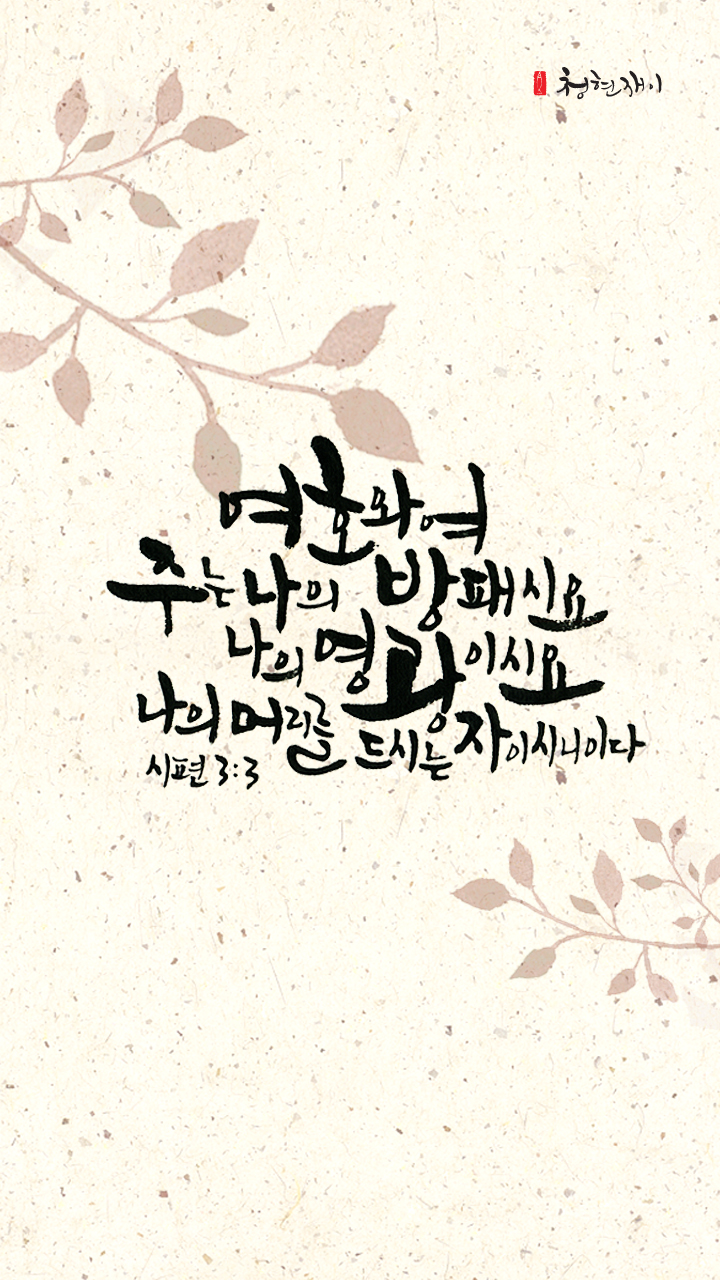 청현재이
여호와여
주는 나의 방패시요
나의 영광이시요
나의 머리를 드시는 자이시니이다
시편 3:3